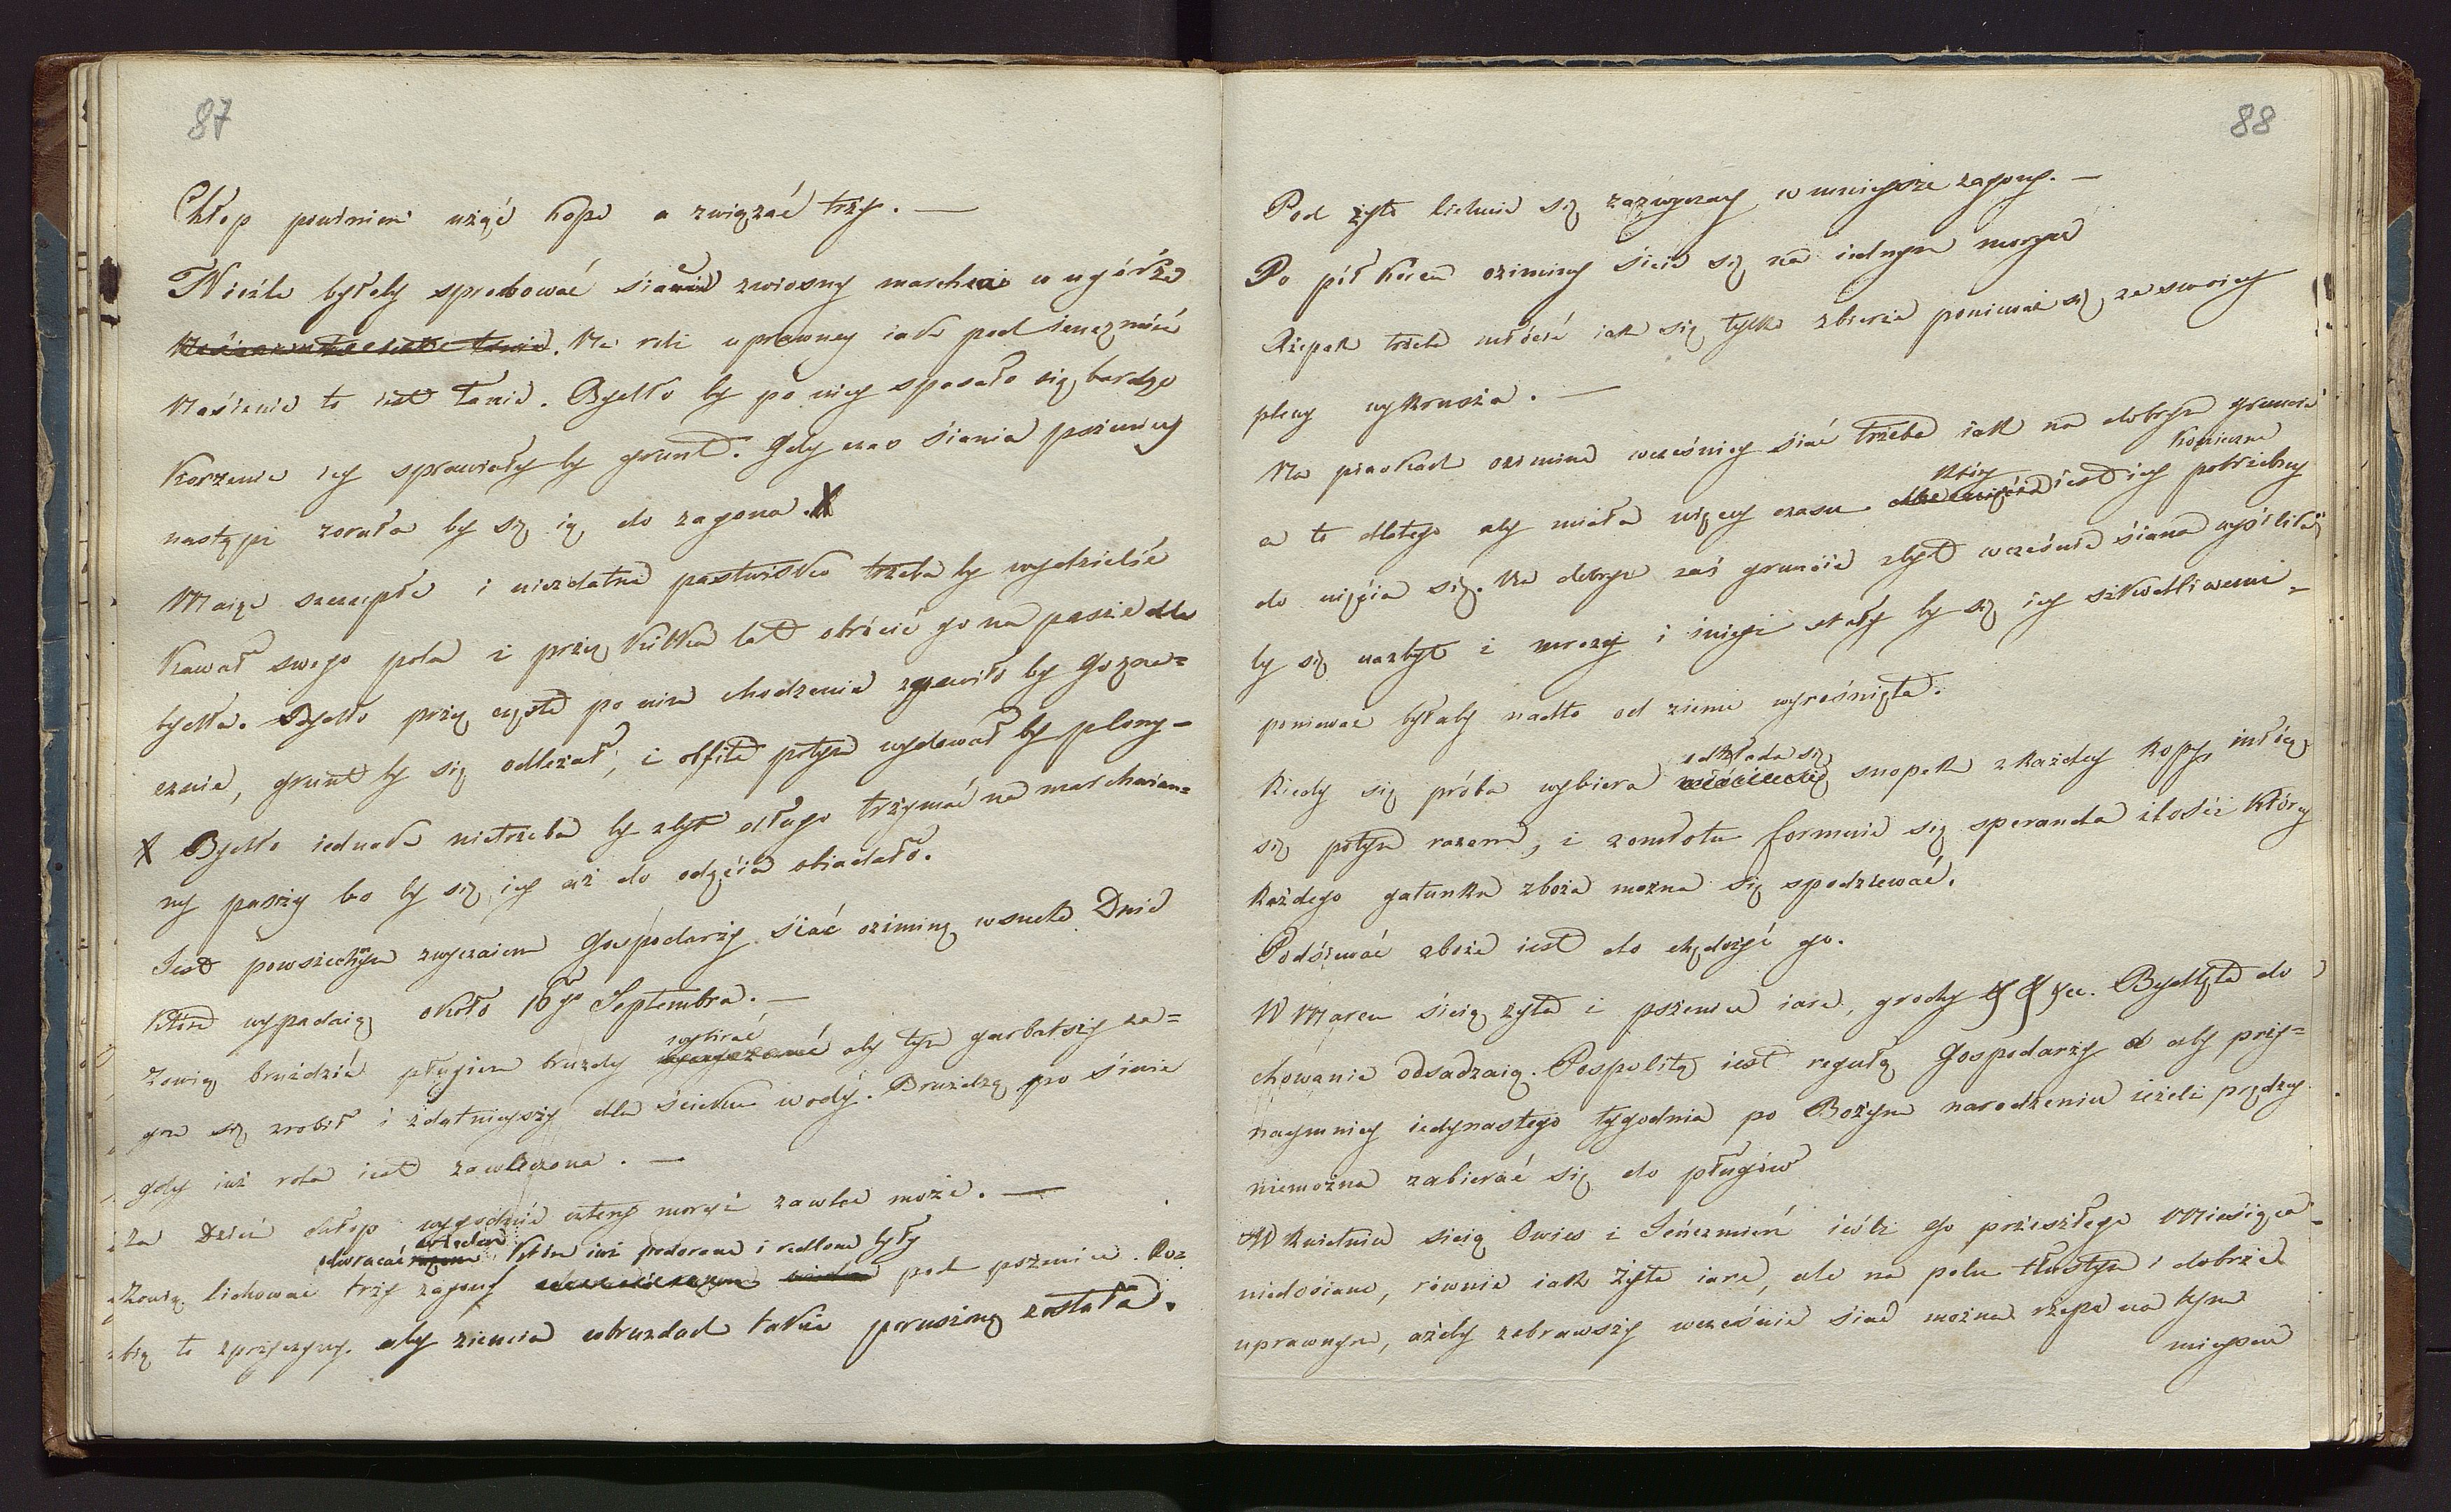 87
Chłop powinien użąć kopę a związać trży. —
Nieźle byłoby sprobować siania zwiosny marchwi w ugórże
Na roli uprawney iak pod ięczmień
Naśienie to iest tanie. Bydło by po niey spasało się bardzo
Korzenie iey sprawiały by grunt. Gdy czas śiania pszenicy
nastąpi zorała by się ią do zagona. X
Maiąc szczupłe i niezdatne pastwisko trzeba by wydzielić
Kawał swego pola i przez kilka lat obrócić go na paszę dla
bydła. Bydło przez częste po nim chodzenie zgnoiło by go znacz=
cznie, grunt by się odleżał, i obfite potym wydawał by plony —
X Bydło iednak nietrzeba by zbyt długo trzymać na marchwian=
ney paszy bo by się iey aż do odęćia obiadało.
Iest powszechnym zwyczaiem Gospodarzy siać oziminę w suche Dnie
które wypadaią około 16go Septembra. —
Zowią bruździć pługiem bruzdy wybirać aby tym garbatszy za=
gon się zrobił i zdatnieyszy dla ścieku wody. Brużdżą po siniu
gdy iuż rola iest zawleczona. —
za Dzień chłop wygodnie cztery morgi zawlec może. —
Zowią lichować trzy zagony odwracać które iuż podorane i redlone były pod pszenicę. Ro=
bią to zprzyczyny, aby ziemia wbruzdach także poruszoną została.
88
Pod żyto lichuie się zazwyczay w mnieysze zagony. —
Po pół korca oziminy sieie się na iednym morgu
Rżepak trzeba młócić iak się tylko zbierze ponieważ się ze swoiey
plewy wykrusza. —
Na piaskach oziminę wcześniey siać trzeba iak na dobrym gruncie
a to dlatego aby miała więcey czasu który iest iey koniecznie potrzebny
do uięćia się. Na dobrym zaś grunćie zbyt wcześnie śiana wyśliła
by się nazbyt i mrozy i śniegi stały by się iey szkodliwemi —
ponieważ byłaby nadto od ziemi wyrośnięta.
Kiedy się próba wybiera odkłada się snopek zkażdey kopy, młócą
się potym razem, i zomłotu formuie się speranda ilośći którey
każdego gatunku zboża można się spodziewać.
Podśiewać zboże iest do chędożyć go.
W Marcu sieią żyto i pszenicę iare, grochy &c. Bydlęta do
chowania odsadzaią. Pospolitą iest regułą Gospodarzy aby przy=
naymniey iedynastego tygodnia po Bożym narodzeniu ieżeli prędzey
niemożna zabierać się do pługów
W Kwietniu sieią Owies i Ięńczmień ieśli go przeszłego Miesiąca
niedosiano, równie iak żyto iare, ale na polu tłustym i dobrze
uprawnym, ażeby zebrawszy wcześnie siać można rżepę na tym
mieyscu